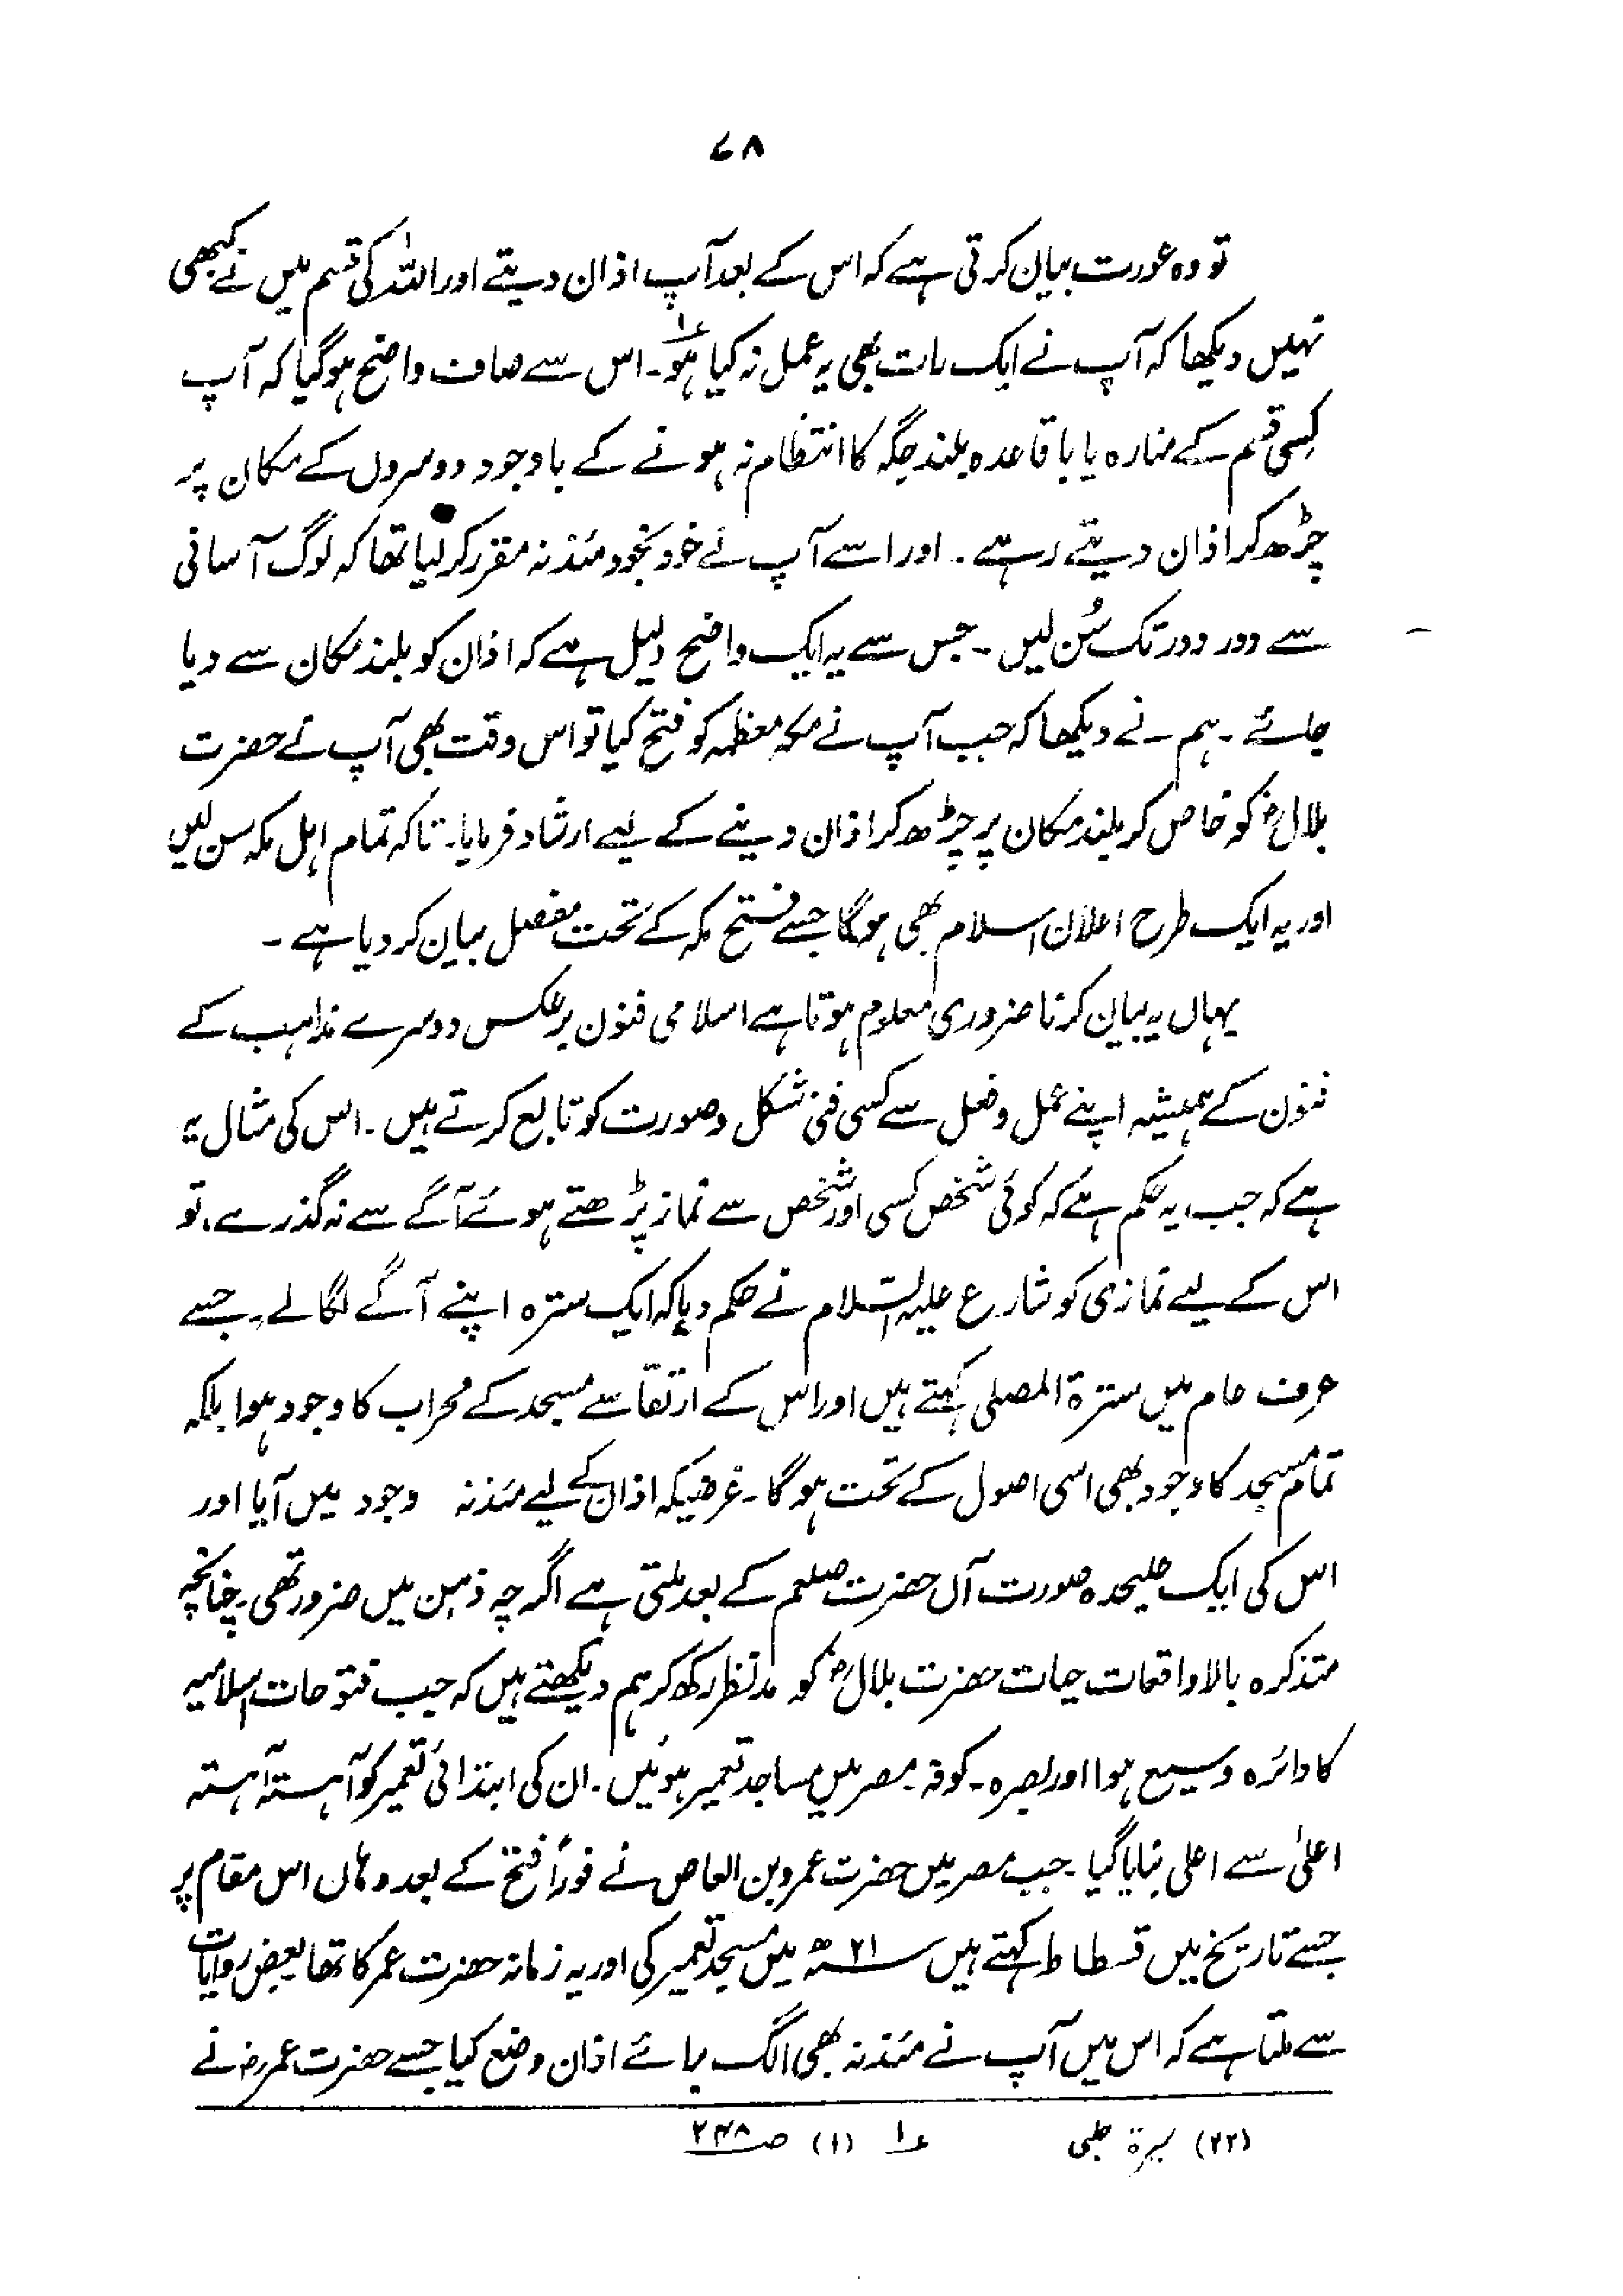 ۷۸
تو وہ عورت بیان کرتی ہے کہ اس کے بعد آپ اذان دیتے اور اللہ کی قسم میں نے کبھی
نہیں دیکھا کہ آپ نے ایک رات بھی یہ عمل نہ کیا ہو۔ ؏۱ اس سے صاف واضح ہوگیا کہ آپ
کِسی قسم کے منارہ یا باقاعدہ بلند جگہ کا انتظام نہ ہونے کے باوجود دوسروں کے مکان پر
چڑھ کر اذان دیتے رہے۔ اور اسے آپ نے خود بخود مئذنہ مقرر کر لیا تھا کہ لوگ آسانی
سے دور دور تک سُن لیں۔ جس سے یہ ایک واضح دلیل ہے کہ اذان کو بلند مکان سے دیا
جائے۔ ہم نے دیکھا کہ جب آپ نے مکہ معظمہ کو فتح کیا تو اس وقت بھی آپ نے حضرت
بلالؓ کو خاص کر بلند مکان پر چڑھ کر اذان دینے کے لیے ارشاد فرمایا۔ تاکہ تمام اہل مکہ سن لیں
اور یہ ایک طرح اعلان اسلام بھی ہوگا جسے فتح مکہ کے تحت مفصل بیان کر دیا ہے۔
یہاں یہ بیان کرنا ضروری معلوم ہوتا ہے اسلامی فنون برعکس دوسرے مذاہب کے
فنون کے ہمیشہ اپنے عمل و فعل سے کسی فنی شکل و صورت کو تابع کرتے ہیں۔ اس کی مثال یہ
ہے کہ جب یہ حکم ہے کہ کوئی شخص کسی اور شخص سے نماز پڑھتے ہوئے آگے سے نہ گذرے، تو
اس کے لیے نمازی کو شارع علیہ السّلام نے حکم دیا کہ ایک سترہ اپنے آگے لگا لے۔ جسے
عرف عام میں سترۃ المصلی کہتے ہیں اور اس کے ارتقا سے مسجد کے محراب کا وجود ہوا بلکہ
تمام مسجد کا وجود بھی اسی اصول کے تحت ہوگا۔ غرضیکہ اذان کے لیے مئذنہ وجود میں آیا اور
اس کی ایک علیحدہ صورت آں حضرت صلعم کے بعد ملتی ہے اگرچہ ذہن میں ضرور تھی۔ چنانچہ
متذکرہ بالا واقعات حیات حضرت بلالؓ کو مدنظر رکھ کر ہم دیکھتے ہیں کہ جب فتوحات اسلامیہ
کا دائرہ وسیع ہوا اور بصرہ۔ کوفہ۔ مصر میں مساجد تعمیر ہوئیں۔ ان کی ابتدائی تعمیر کو آہستہ آہستہ
اعلیٰ سے اعلی بنایا گیا۔ جب مصر میں حضرت عمرو بن العاص نے فوراً فتح کے بعد وہاں اس مقام پر
جسے تاریخ میں فسطاط کہتے ہیں ۲۱ھ میں مسجد تعمیر کی اور یہ زمانہ حضرت عمر کا تھا بعض روایات
سے ملتا ہے کہ اس میں آپ نے مئذنہ بھی الگ برائے اذان وضع کیا جسے حضرت عمر رض نے
(۲۲) سیرۃ حلبی ؏۱ (۱) صـ ۲۴۸